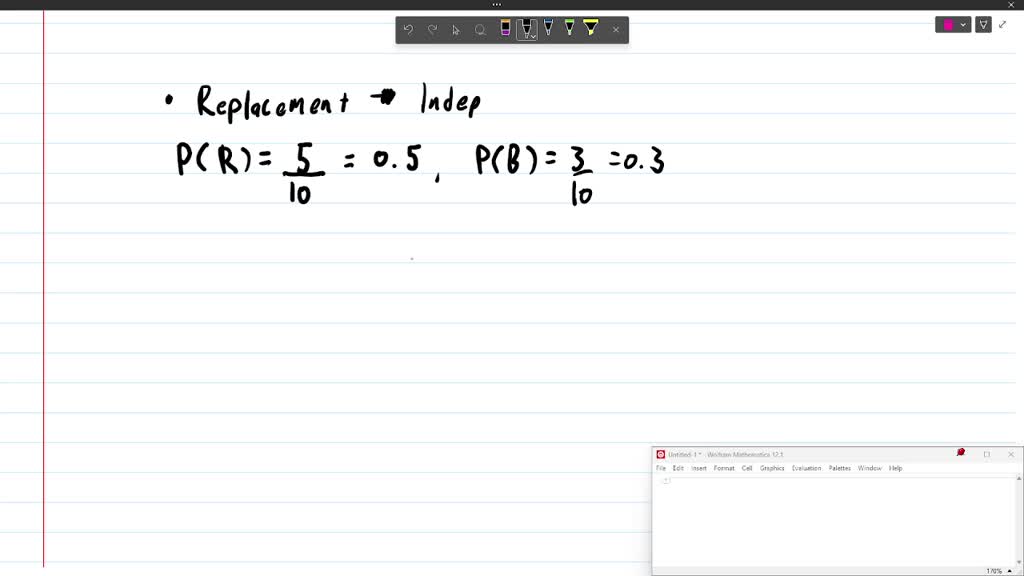 ...
• Replacement → Indep
P(R) = 5/10 = 0.5, P(B) = 3/10 = 0.3
Untitled-1 * - Wolfram Mathematica 12.1
File Edit Insert Format Cell Graphics Evaluation Palettes Window Help
170%